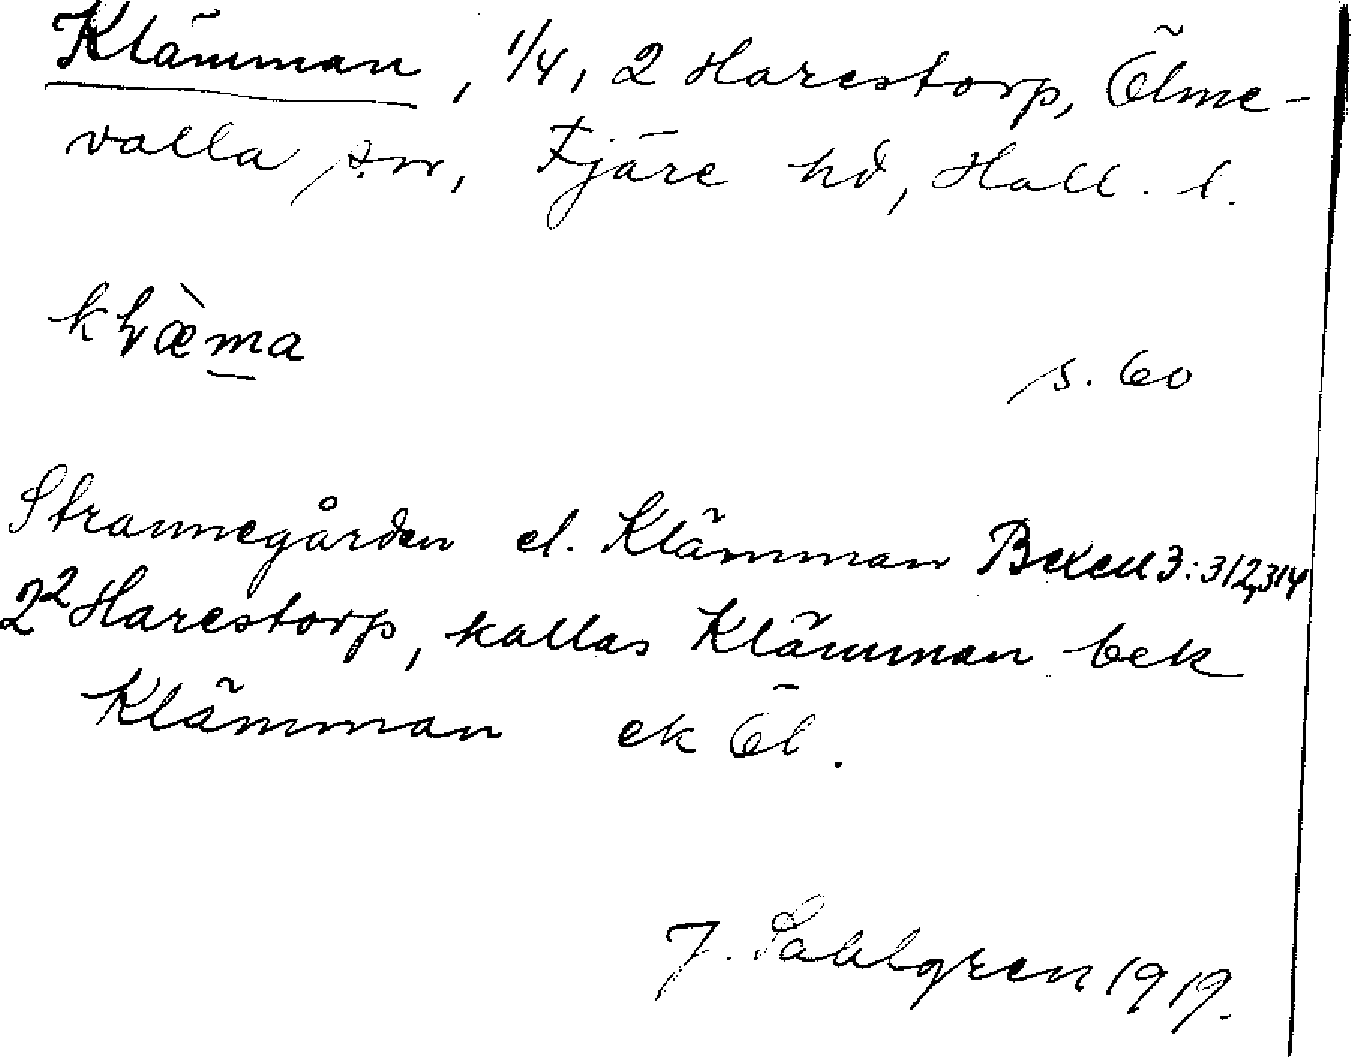 Klämman, 1/4, 2 Harestorp, Ölme-
valla sn, Fjäre hd, Hall. l.
kḷæ̀m̲a
s. 60
Strannegården el. Klämman Bexell 3:312,314
2² Harestorp, kallas Klämman bek
Klämman ek Öl.
J. Sahlgren 1919.